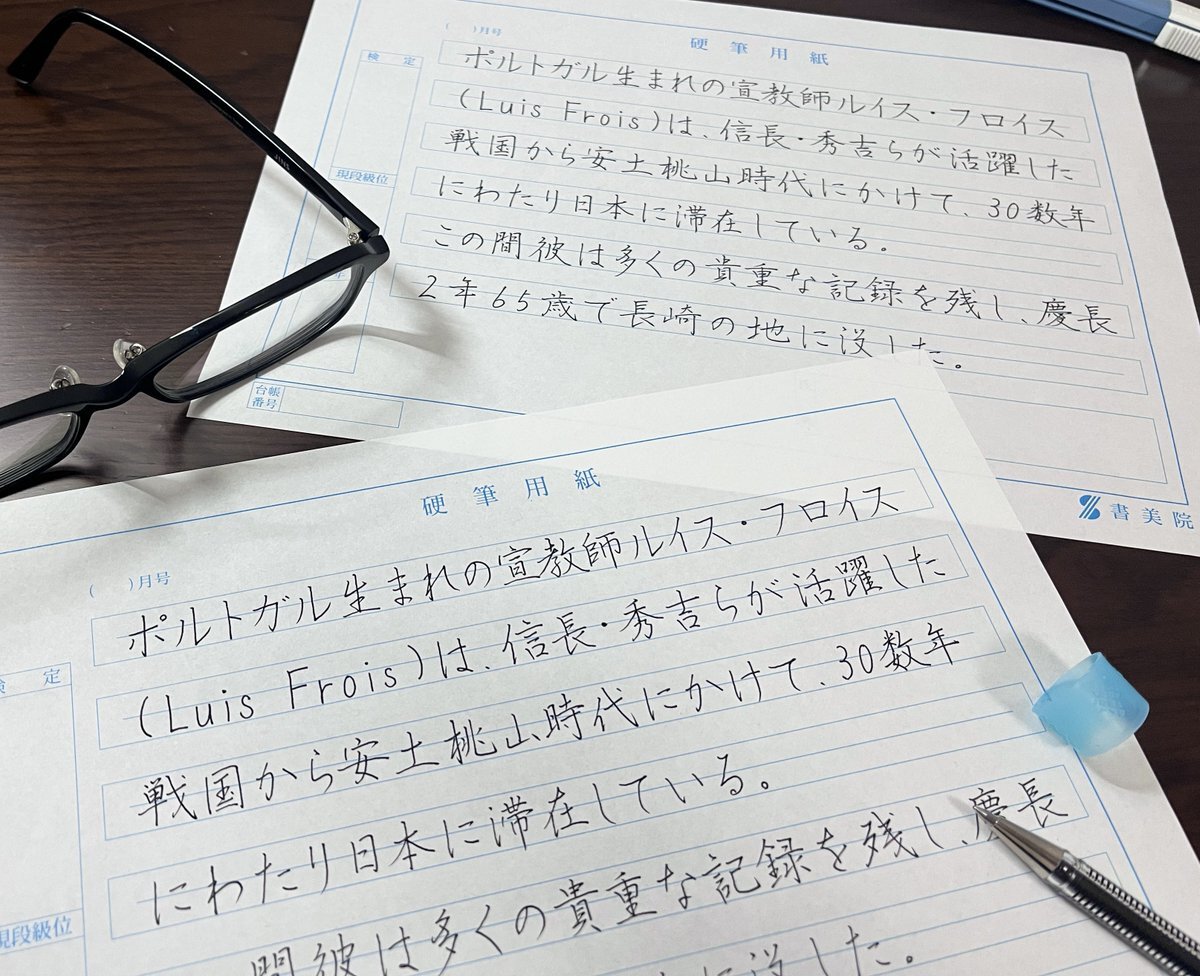 硬筆用紙
( )月号
検定
ポルトガル生まれの宣教師ルイス・フロイス
(Luis Frois)は、信長・秀吉らが活躍した
戦国から安土桃山時代にかけて、30数年
現段級位
にわたり日本に滞在している。
この間彼は多くの貴重な記録を残し、慶長
2年65歳で長崎の地に没した。
台帳
番号
書美院
硬筆用紙
( )月号
検定
ポルトガル生まれの宣教師ルイス・フロイス
(Luis Frois)は、信長・秀吉らが活躍した
戦国から安土桃山時代にかけて、30数年
にわたり日本に滞在している。
現段級位
間彼は多くの貴重な記録を残し、慶長
に没した。